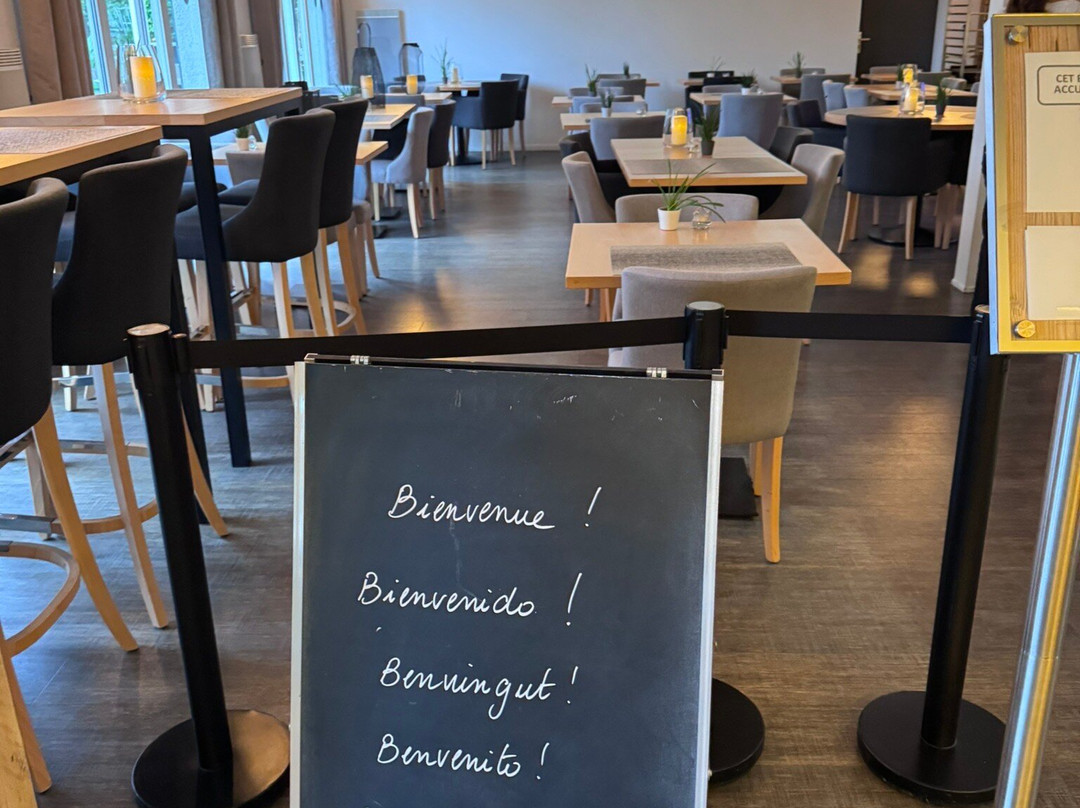 Bienvenue !
Bienvenido !
Benvingut !
Benvenito !
CET
ACCU